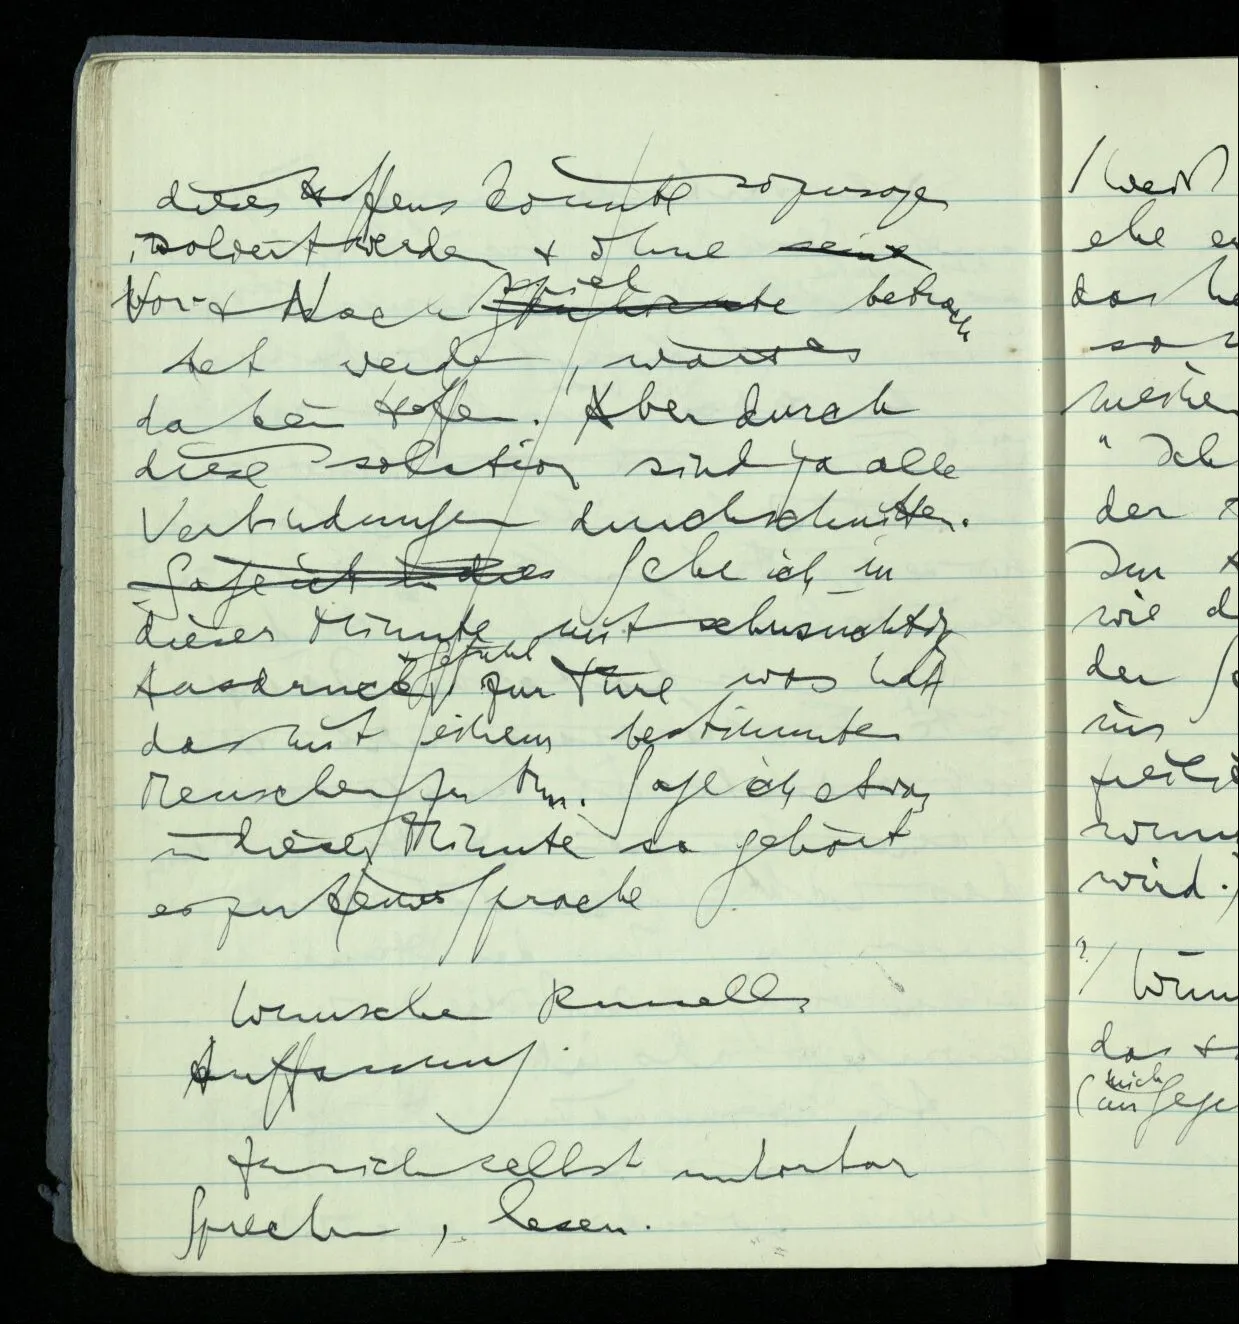 dieses Hoffens könnte sozusagen
isoliert werden & ohne seine
Vor- & Nach spiel betrach
tet werden, wäre es
da kein Hoffen. Aber durch
diese Isolation sind ja alle
Verbindungen durchschnitten.
Sage ich in dies Gehe ich in
dieser Minute mit sehnsüchtig
Ausdruck & Gefühl zur Türe was hat
das mit einem bestimmten
Menschen zu tun. Sage ich etwas
in dieser Minute so gehört
es zu einer Sprache
Wünschen Russells
Auffassung.
Zu sich selbst unhörbar
Sprechen, lesen.
/ Weiß
ehe
das
so
meinen
" Ich
der
Im
wie d
der
ins
wird.)
?/ Wün
das &
mich
(